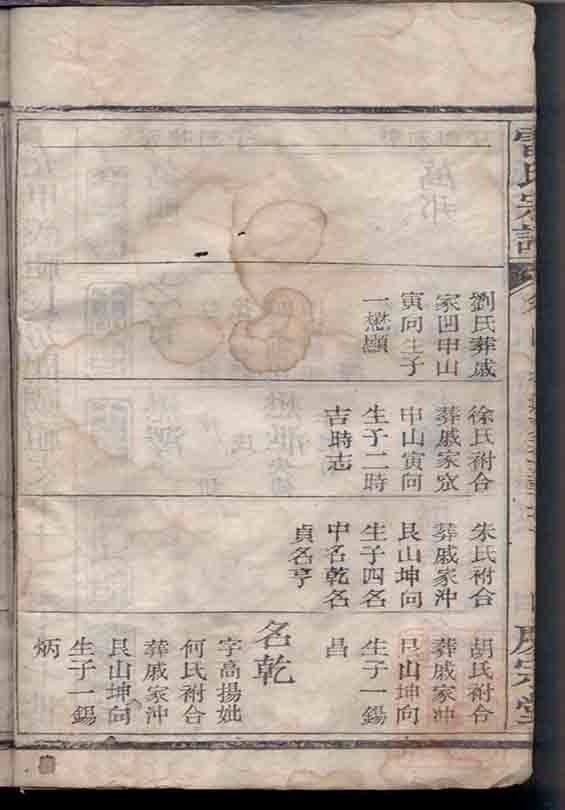 劉氏葬戚
家凹申山
寅向生子
一懋顯
徐氏祔合
葬戚家窊
申山寅向
生子二時
吉時志
朱氏祔合
葬戚家沖
艮山坤向
生子四名
中名乾名
貞名亨
胡氏祔合
葬戚家沖
艮山坤向
生子一錫
昌
名乾
字高揚妣
何氏祔合
葬戚家沖
艮山坤向
生子一錫
炳